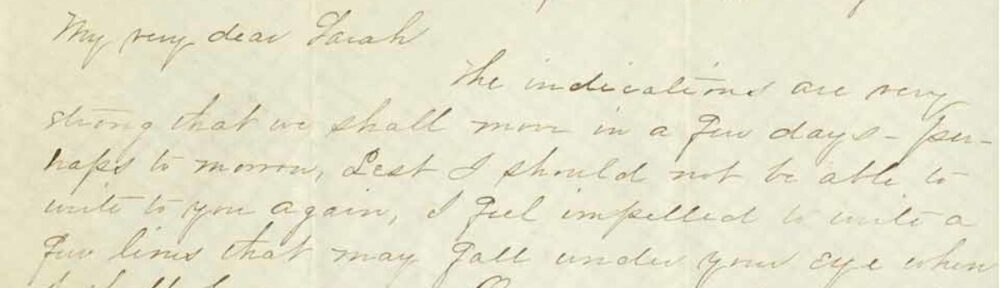 My very dear Sarah
The indications are very
strong that we shall move in a few days - per-
haps to morrow, Lest I should not be able to
write to you again, I feel impelled to write a
few lines that may fall under your eye when